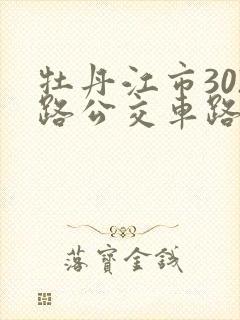 牡丹江市30
路公交車路
落寶金錢